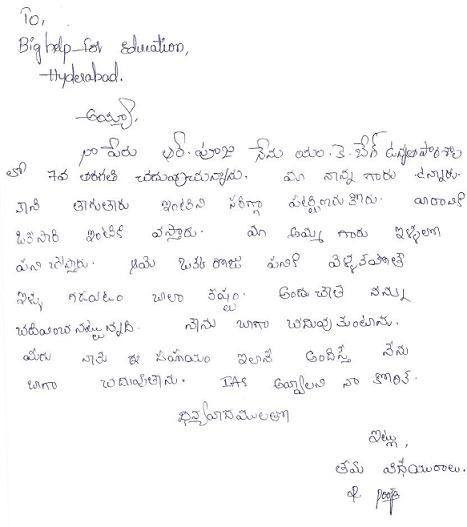 To,
Big help for Education,
Hyderabad.
అయ్యా,
నా పేరు ఆర్. పూజ నేను యం. కె. బేగ్ ఉన్నతపాఠశాల
లో 7వ తరగతి చదువుచున్నాను. మా నాన్న గారు ఉన్నారు.
కాని తాగుతారు ఇంటిని సరిగ్గా పట్టించుకోరు. వారానికి
ఒకసారి ఇంటికి వస్తారు. మా అమ్మ గారు ఇళ్ళలో
పని చేస్తారు. ఆమె ఒకరోజు పనికి వెళ్ళకపోతే
ఇల్లు గడవటం చాలా కష్టం. అందుచేత నన్ను
బాగా చదువుకుంటాను.
మీరు నాకు ఈ సహాయం ఇలానే అందిస్తే నేను
బాగా చదువుతాను. IAS అవ్వాలని నా కోరిక.
ధన్యవాదములతో
ఇట్లు,
తమ విధేయురాలు.
R pooja